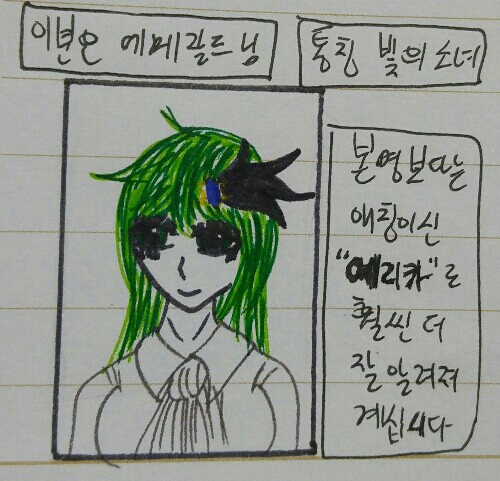 이번은 에메랄드 님
통칭 빛의 소녀
본명보다는
애칭이신
"에리카"로
훨씬 더
잘 알려져
계십니다